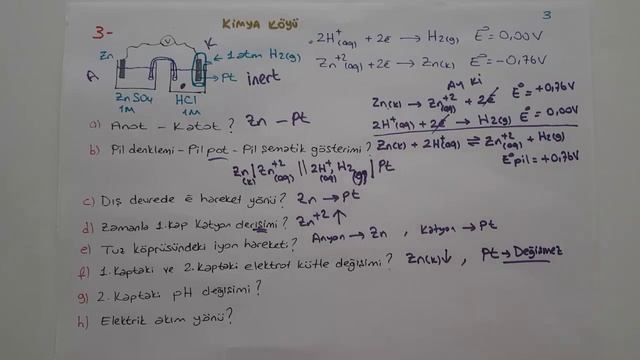 KİMYA KÖYÜ
3
3-
V
Zn
K
A
1 atm H2(g)
Pt inert
ZnSO4
1M
HCl
1M
2H⁺(aq) + 2e⁻ → H2(g) E° = 0,00V
Zn⁺²(aq) + 2e⁻ → Zn(k) E° = -0,76V
Ay Ki
Zn(k) → Zn⁺²(aq) + 2e⁻ E° = +0,76V
2H⁺(aq) + 2e⁻ → H2(g) E° = 0,00V
Zn(k) + 2H⁺(aq) ⇌ Zn⁺²(aq) + H2(g)
E°pil = +0,76V
a) Anot - Katot? Zn - Pt
b) Pil denklemi - Pil pot - Pil şematik gösterimi?
Zn(k) | Zn⁺²(aq) || 2H⁺(aq), H2(g) | Pt
c) Dış devrede ē hareket yönü? Zn → Pt
d) Zamanla 1.kap katyon derişimi? Zn⁺² ↑
e) Tuz köprüsündeki iyon hareketi? Anyon → Zn , Katyon → Pt
f) 1. Kaptaki ve 2.kaptaki elektrot kütle değişimi? Zn(k)↓ , Pt → Değişmez
g) 2. Kaptaki pH değişimi?
h) Elektrik akım yönü?